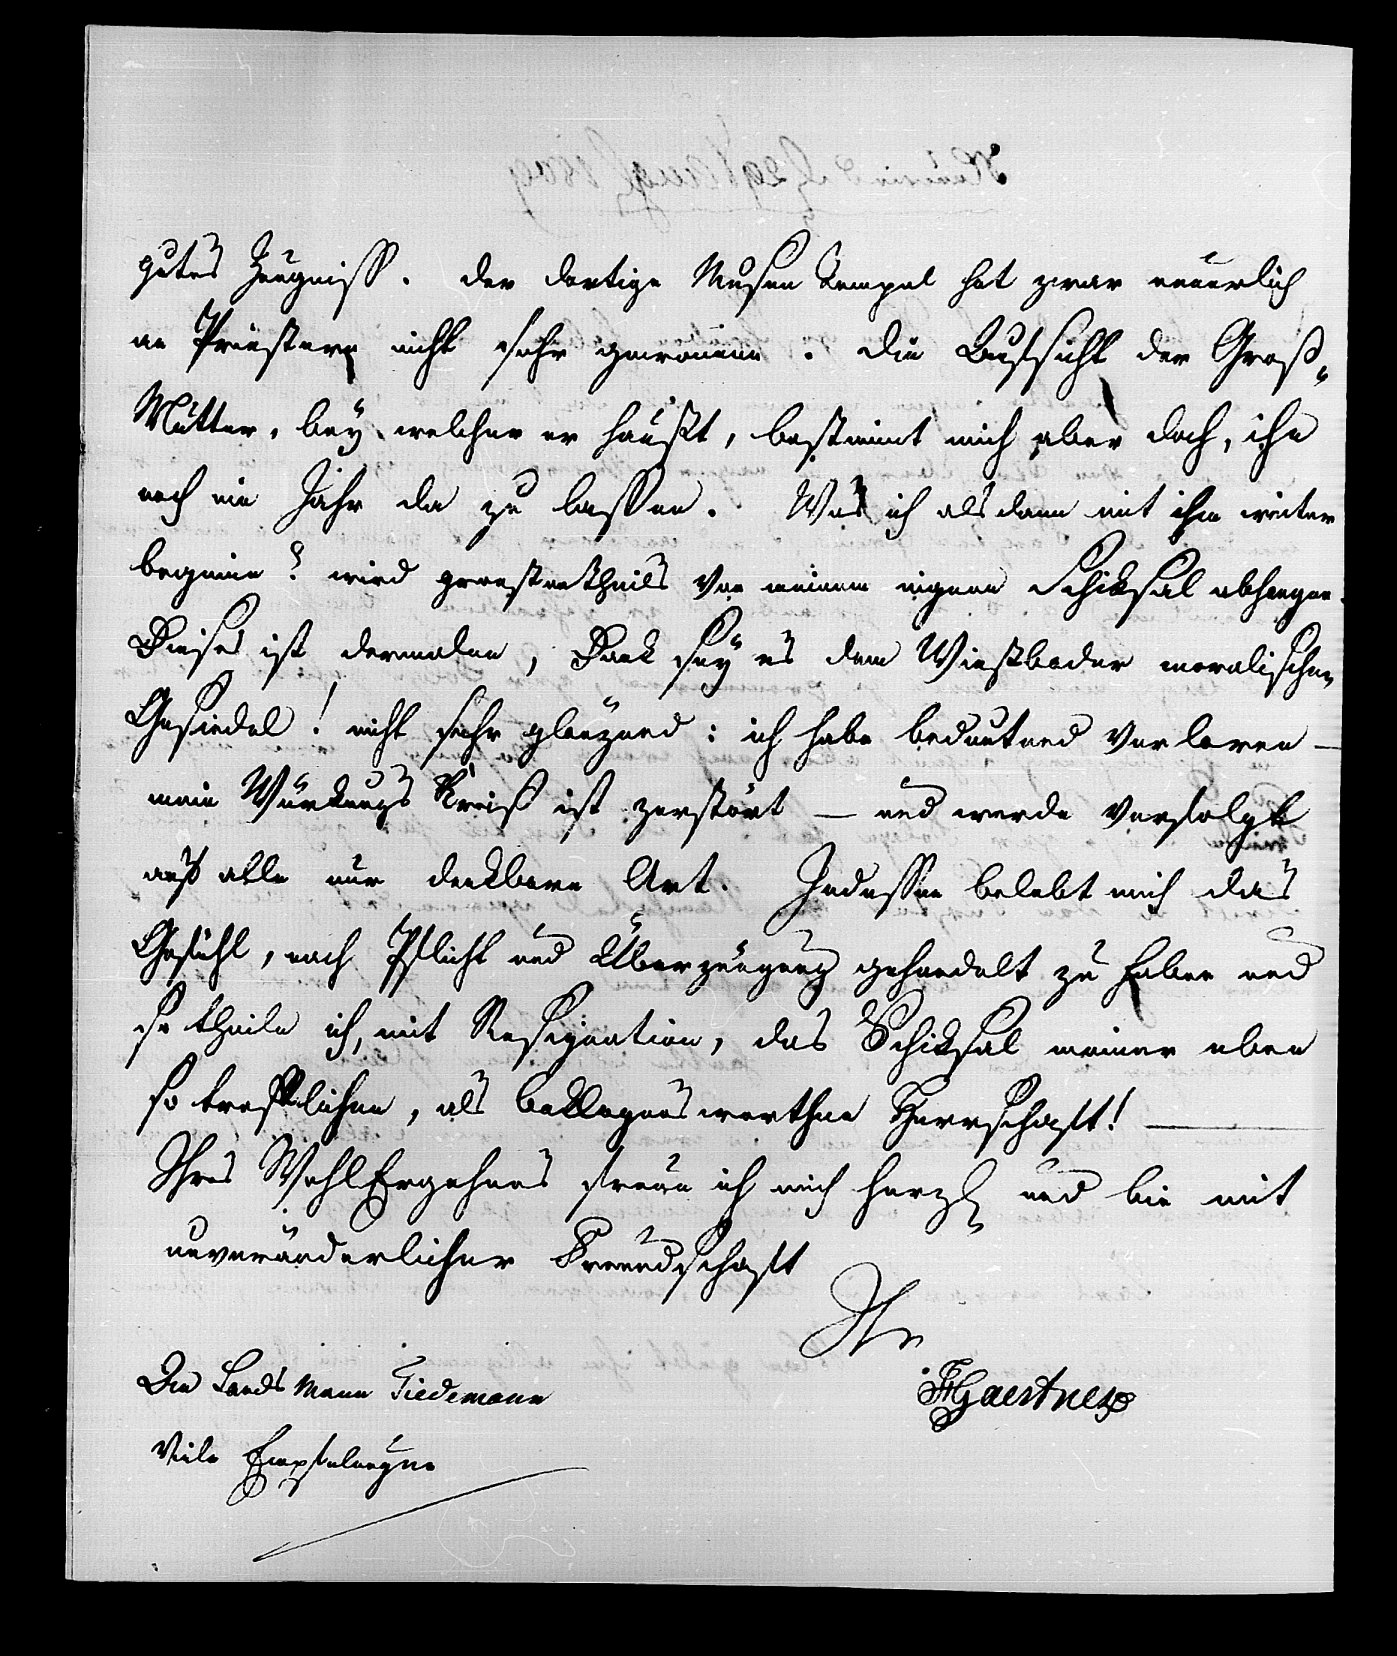 gutes Zeugniss. Der dortige Musen Tempel hat zwar neuerlich
an Priestern nicht sehr gewonnen. Die Aufsicht der Groß„
Mutter, bey welcher er haußt, bestimmt mich aber doch, ihn
noch ein Jahr da zu lassen. Was ich alsdann mit ihm weiter
beginne? wird groestentheils von meinem eigenen Schiksal abhangen.
Dieses ist dermalen, Dank sey es dem Wiesbader moralischen
Gesindel! nicht sehr glänzend: ich habe bedeutend verloren —
mein Würkungs Kreiß ist zerstört — und werde verfolgt
auf alle nur denkbare Art. Indessen belebt mich das
Gefühl, nach Pflicht und Überzeugung gehandelt zu haben und
so theile ich, mit Resignation, das Schiksal meiner eben
so trefflichen, als beklagenswerthen Herrschaft! —
Ihres WohlErgehens freue ich mich herzl und bin mit
unveränderlicher Freundschaft
Ihr
Gaertner
Den Landsmann Tiedemann
Viele Empfelungen